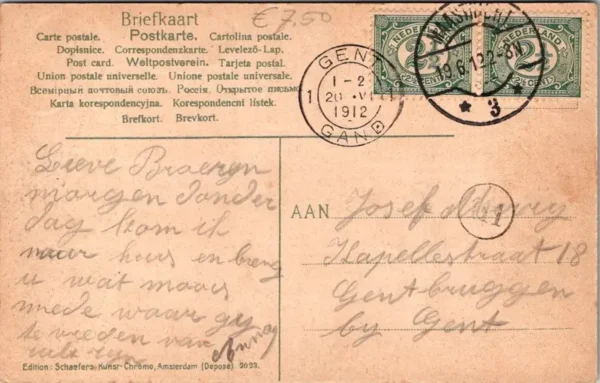 Briefkaart
€ 7,50
Carte postale. Postkarte. Cartolina postale.
Dopisnice. Correspondenzkarte. Levelező-Lap.
Post card. Weltpostverein. Tarjeta postal.
Union postale universelle. Unione postale universale.
Всемірный почтовый союзъ. Россія. Открытое письмо
Karta korespondencyjna. Korespondencní lístek.
Brefkort. Brevkort.
NEDERLAND
2½
CENT
NEDERLAND
2½
CENT
MAASTRICHT
19.6.12.2-3N
3
GENT
1
1-2
20 VI
1912
GAND
Lieve Broertjn
morgen donder
dag kom ik
naar huis en breng
u wat moois
mede waar gy
te vreden van
zult zyn
AAN
Josef
Kapellestraat 18
Gentbruggen
by Gent
Edition: Schaefers Kunst-Chromo, Amsterdam (Deposé)